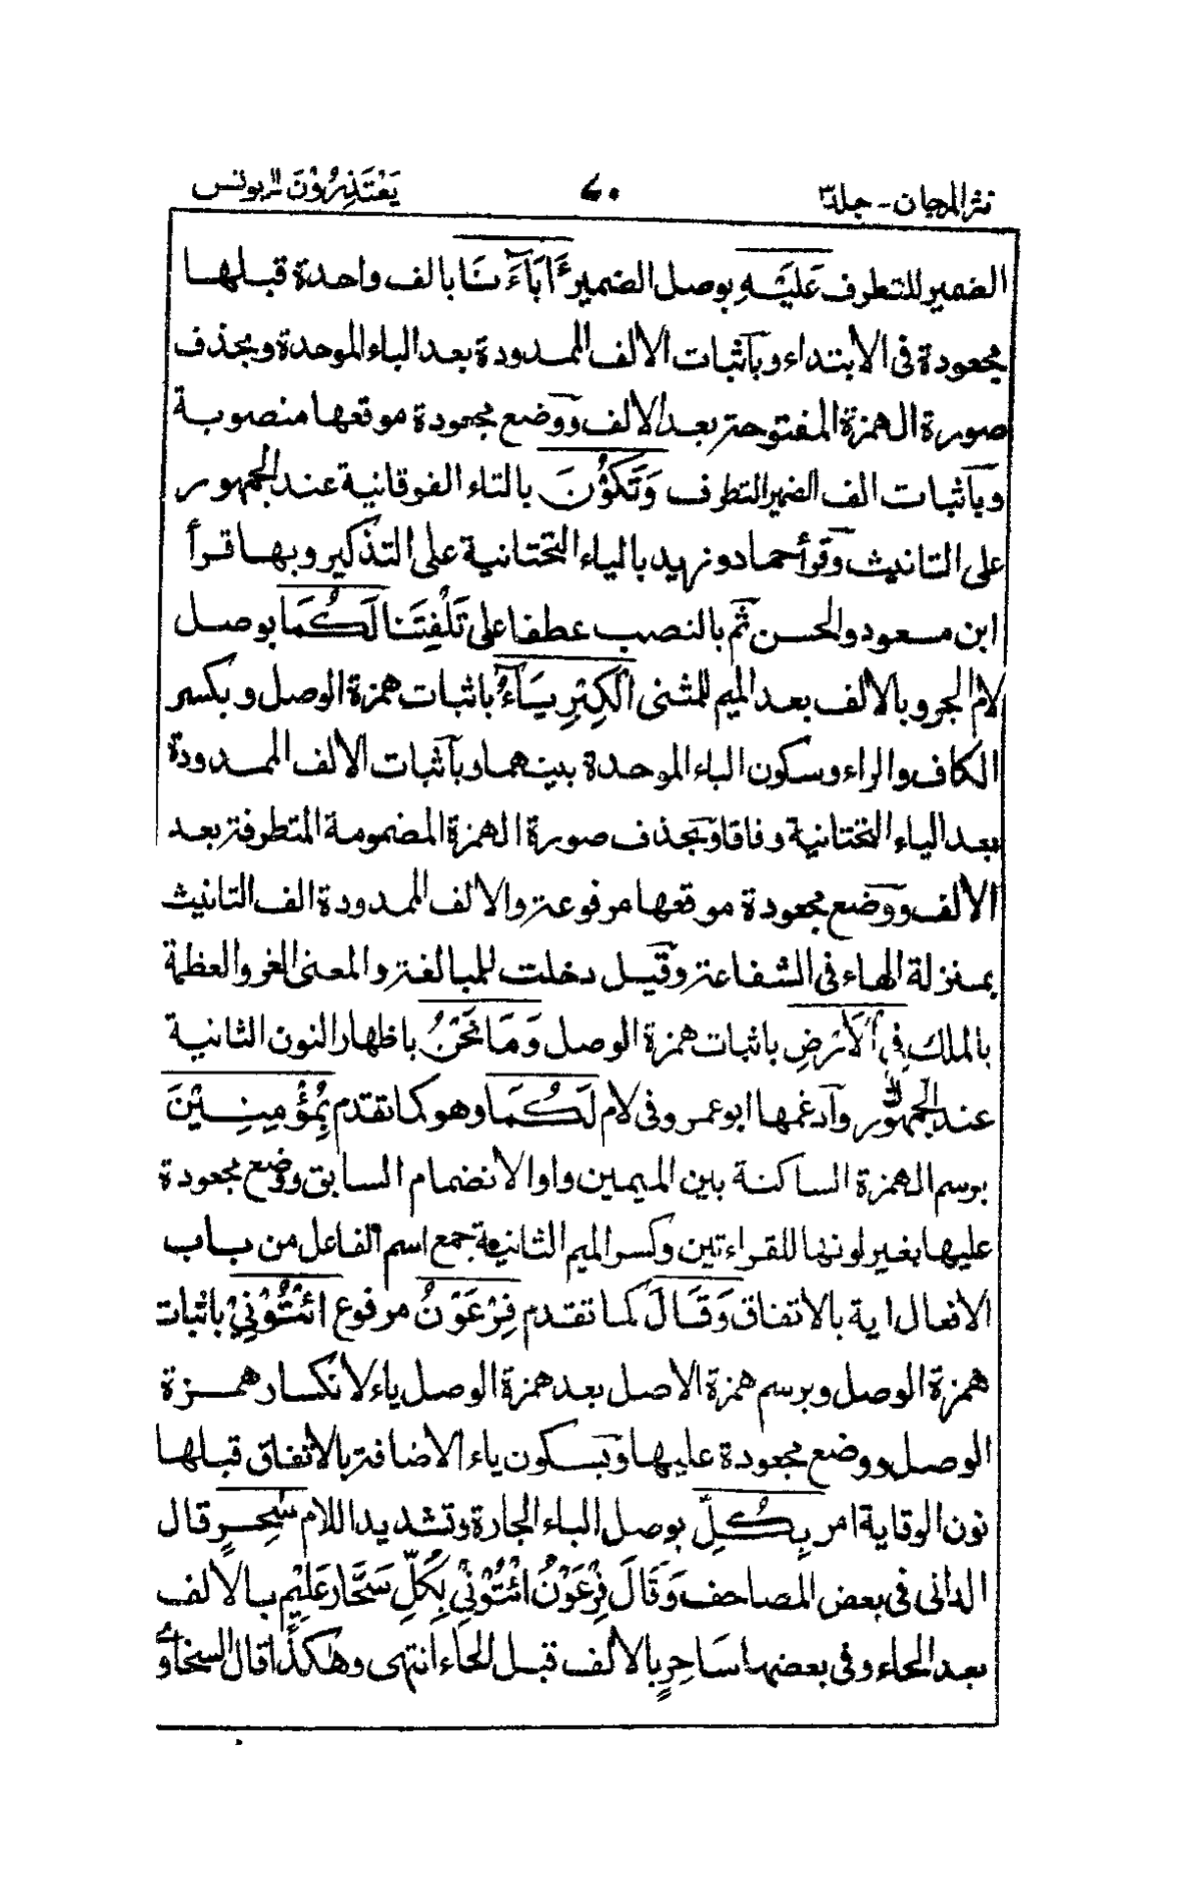 نثر المرجان - جلد ٣
٧٠
يَعْتَذِرُوْنَ ١١ يونس
الضمير للتطرف عَلَيْهِ بوصل الضمير ءَابَآءَنَا بالف واحدة قبلها
مجعودة فى الابتداء وبآثبات الالف الممدودة بعد الباء الموحدة وبحذف
صورة الهمزة المفتوحة بعد الالف ووضع مجعودة موقعها منصوبة
وبآثبات الف الضمير للتطرف وَتَكُوْنَ بالتاء الفوقانية عند الجمهور
على التانيث وقرأ حماد وزيد بالياء التحتانية على التذكير وبها قرأ
ابن مسعود والحسن ثم بالنصب عطفا على تَلْفِتَنَا لَكُمَا بوصل
لام الجر وبالالف بعد الميم للمثنى الْكِبْرِيَآءُ باثبات همزة الوصل وبكسر
الكاف والراء وسكون الباء الموحدة بينهما وبآثبات الالف الممدودة
بعد الياء التحتانية وفاقا وبحذف صورة الهمزة المضمومة المتطرفة بعد
الالف ووضع مجعودة موقعها مرفوعة والالف الممدودة الف التانيث
بمنزلة الهاء فى الشفاعة وقيل دخلت للمبالغة والمعنى العز والعظمة
بالملك فِي الْاَرْضِ باثبات همزة الوصل وَمَا نَحْنُ باظهار النون الثانية
عند الجمهور وآدغمها ابو عمرو فى لام لَكُمَا وهو كما تقدم بِمُؤْمِنِيْنَ
برسم الهمزة الساكنة بين الميمين واوا لانضمام السابق ووضع مجعودة
عليها بغير لونها للقراءتين وكسر الميم الثانية جمع اسم الفاعل من باب
الافعال اية بالاتفاق وَقَالَ كما تقدم فِرْعَوْنُ مرفوع ائْتُوْنِيْ باثبات
همزة الوصل وبرسم همزة الاصل بعد همزة الوصل ياء لانكسار همزة
الوصل ووضع مجعودة عليها وبسكون ياء الاضافة بالاتفاق قبلها
نون الوقاية امر بِكُلِّ بوصل الباء الجارة وتشديد اللام سٰحِرٍ قال
الدانى فى بعض المصاحف وَقَالَ فِرْعَوْنُ ائْتُوْنِيْ بِكُلِّ سَحَّارٍ عَلِيْمٍ بالالف
بعد الحاء وفى بعضها سَاحِرٍ بالالف قبل الحاء انتهى وهٰكذا قال السخاوى